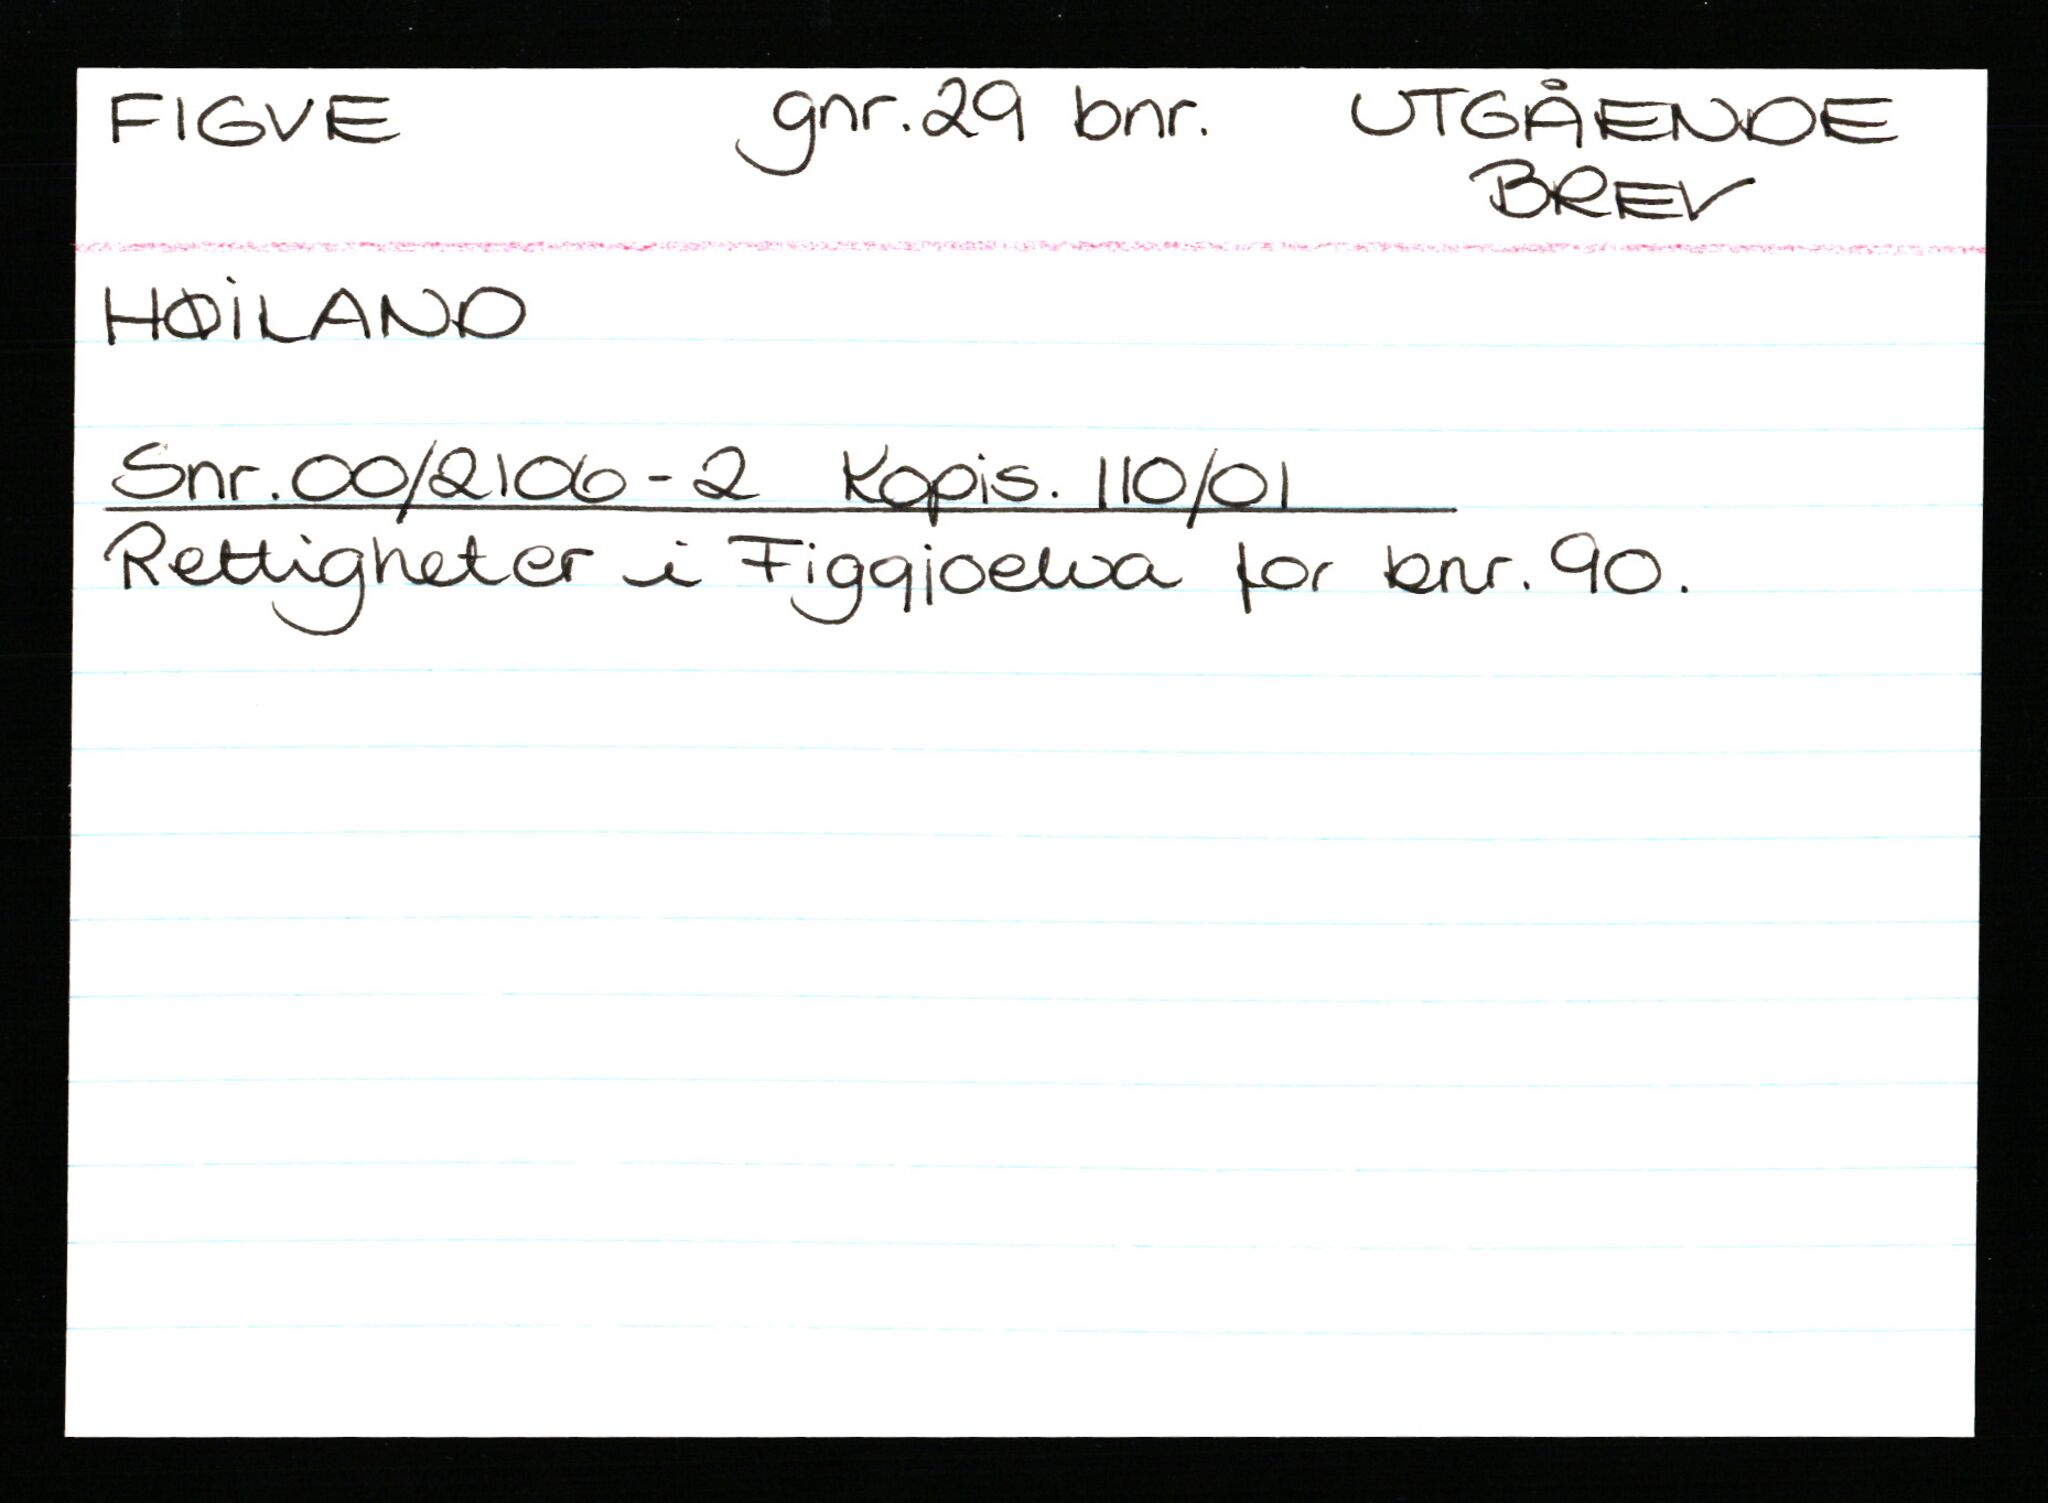 FIGVE gnr. 29 bnr. UTGÅENDE
BREV
HØILAND
Snr. 00/2106-2 Kopis. 110/01
Rettigheter i Figgjoelva for bnr. 90.